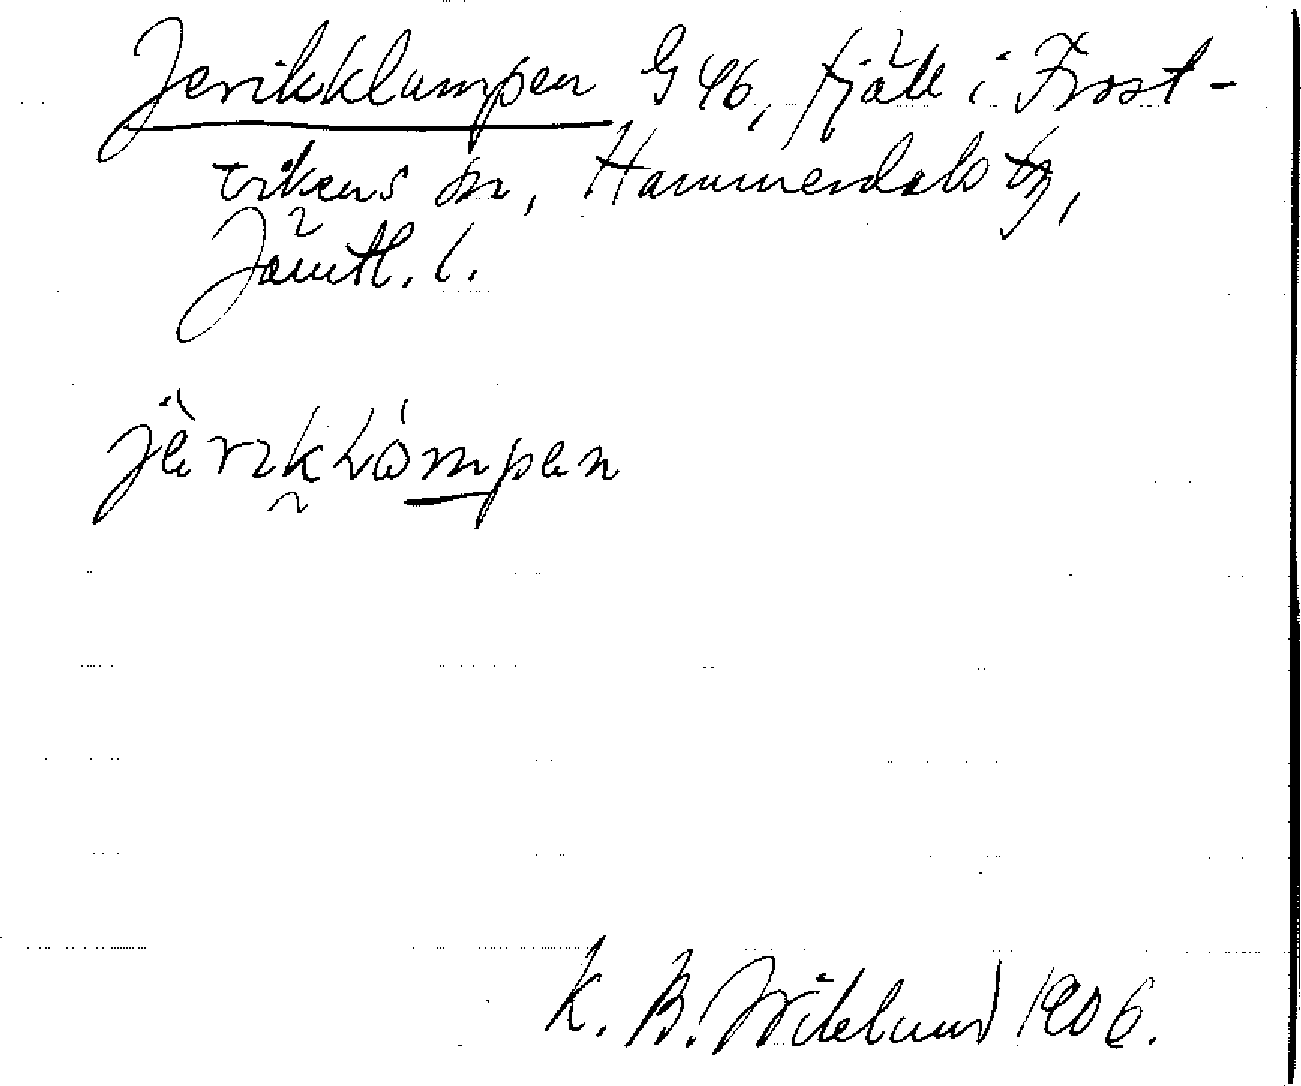 Jerikklumpen G 46, fjäll i Frost-
vikens sn, Hammerdals tg,
Jämtl. l.
jèrɩkʟómpen
K. B. Wiklund 1906.